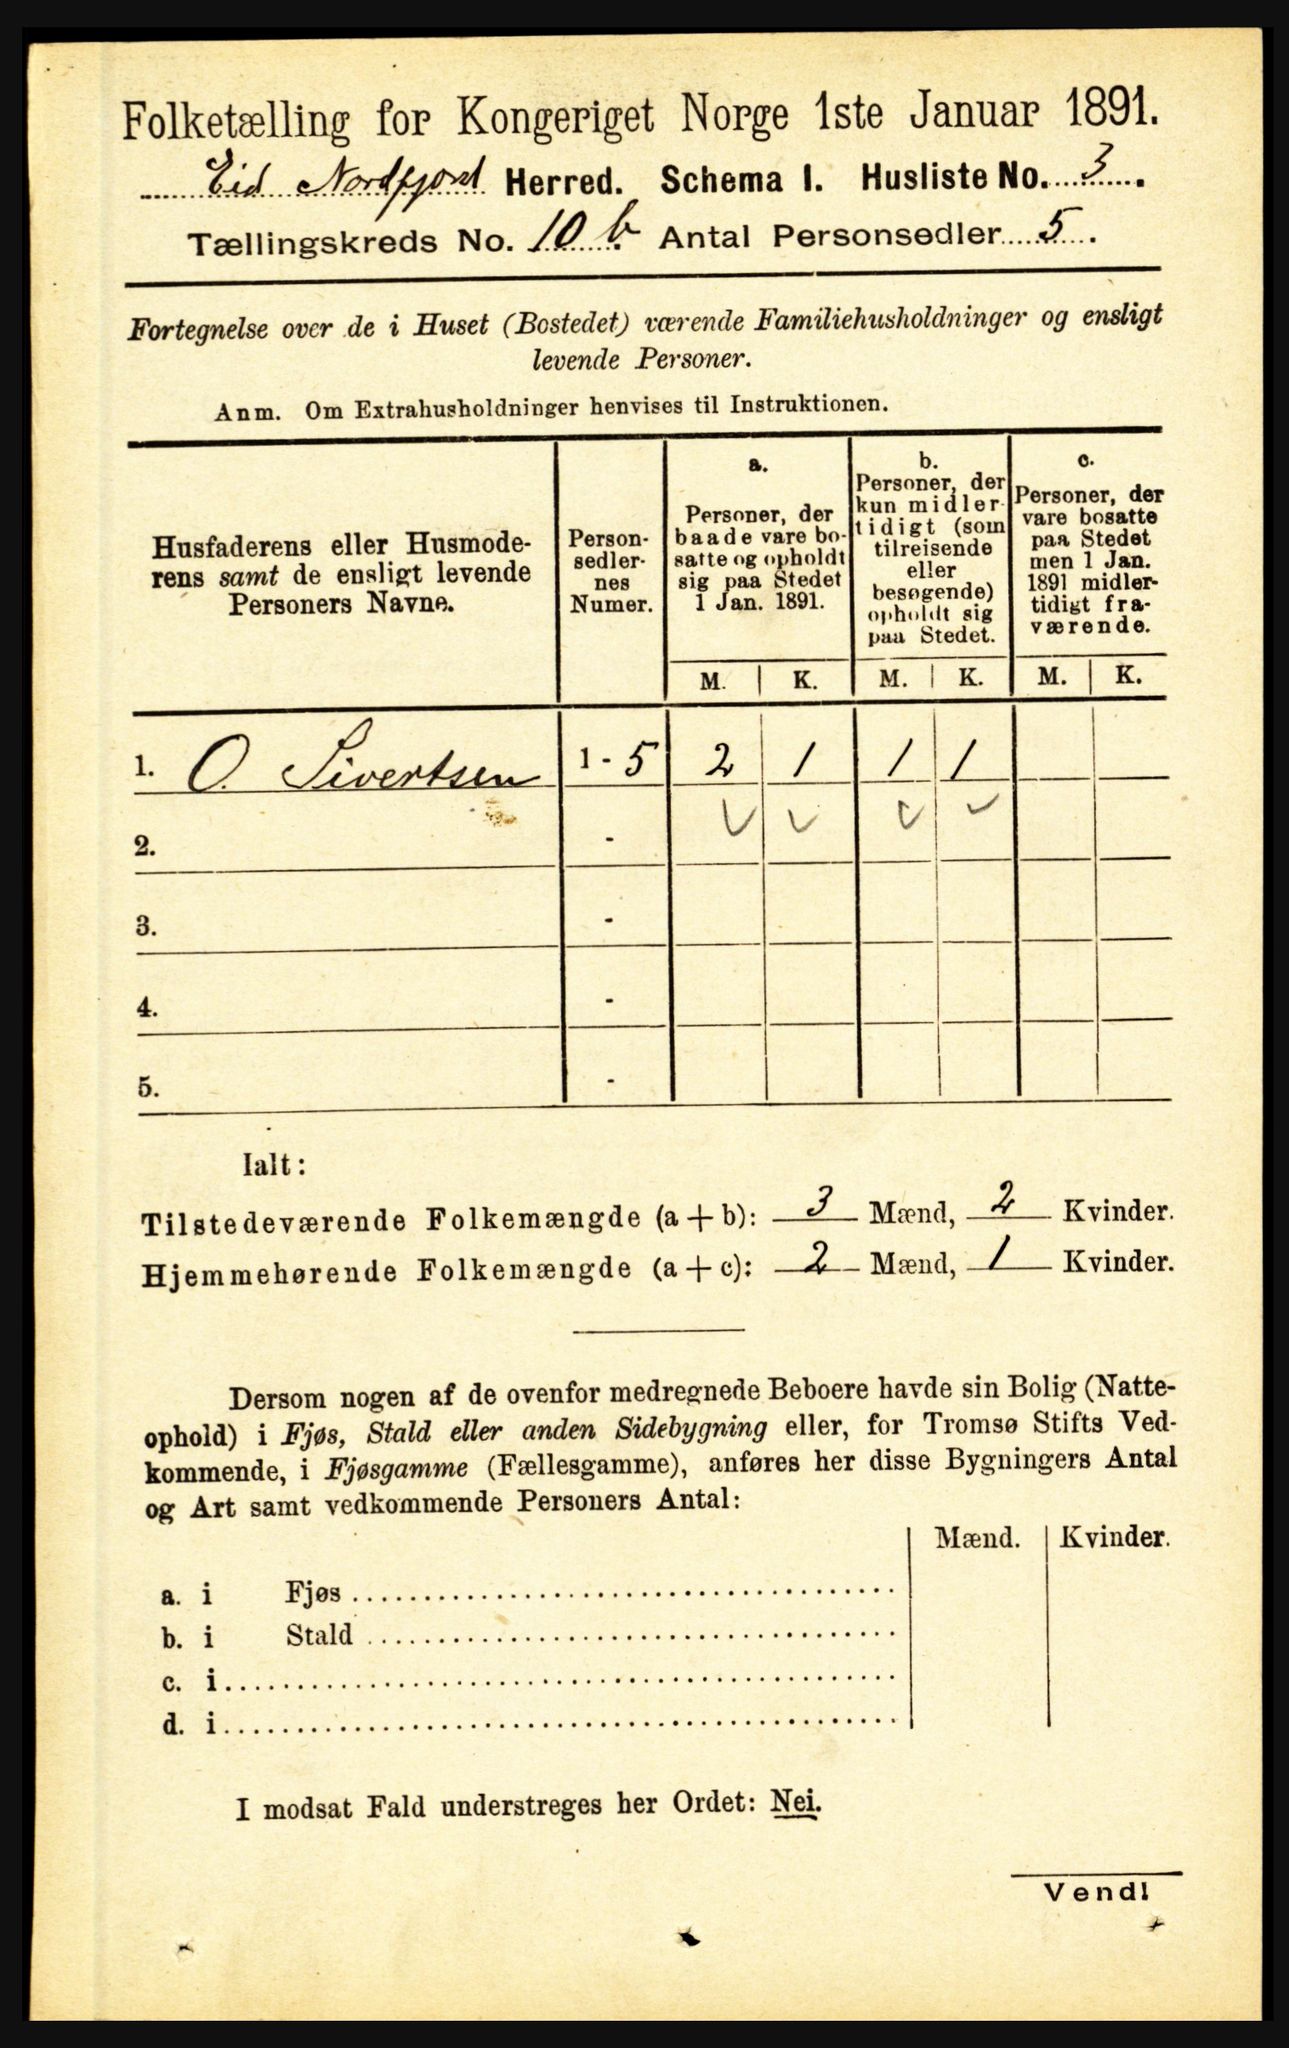 Folketælling for Kongeriget Norge 1ste Januar 1891.
Eid Nordfjord Herred. Schema I. Husliste No. 3.
Tællingskreds No. 10 b. Antal Personsedler 5.
Fortegnelse over de i Huset (Bostedet) værende Familiehusholdninger og ensligt
levende Personer.
Anm. Om Extrahusholdninger henvises til Instruktionen.
Husfaderens eller Husmode-
rens samt de ensligt levende
Personers Navne.
Person-
sedler-
nes
Numer.
a.
Personer, der
baade vare bo-
satte og opholdt
sig paa Stedet
1 Jan. 1891.
b.
Personer, der
kun midler-
tidigt (som
tilreisende
eller
besøgende)
opholdt sig
paa Stedet.
c.
Personer, der
vare bosatte
paa Stedet
men 1 Jan.
1891 midler-
tidigt fra-
værende.
M. K. M. K. M. K.
1. O. Sivertsen 1 - 5 2 1 1 1
2. -
3. -
4. -
5. -
Ialt:
Tilstedeværende Folkemængde (a + b): 3 Mænd, 2 Kvinder.
Hjemmehørende Folkemængde (a + c): 2 Mænd, 1 Kvinder.
Dersom nogen af de ovenfor medregnede Beboere havde sin Bolig (Natte-
ophold) i Fjøs, Stald eller anden Sidebygning eller, for Tromsø Stifts Ved-
kommende, i Fjøsgamme (Fællesgamme), anføres her disse Bygningers Antal
og Art samt vedkommende Personers Antal:
Mænd. Kvinder.
a. i Fjøs
b. i Stald
c. i
d. i
I modsat Fald understreges her Ordet: Nei.
Vend!